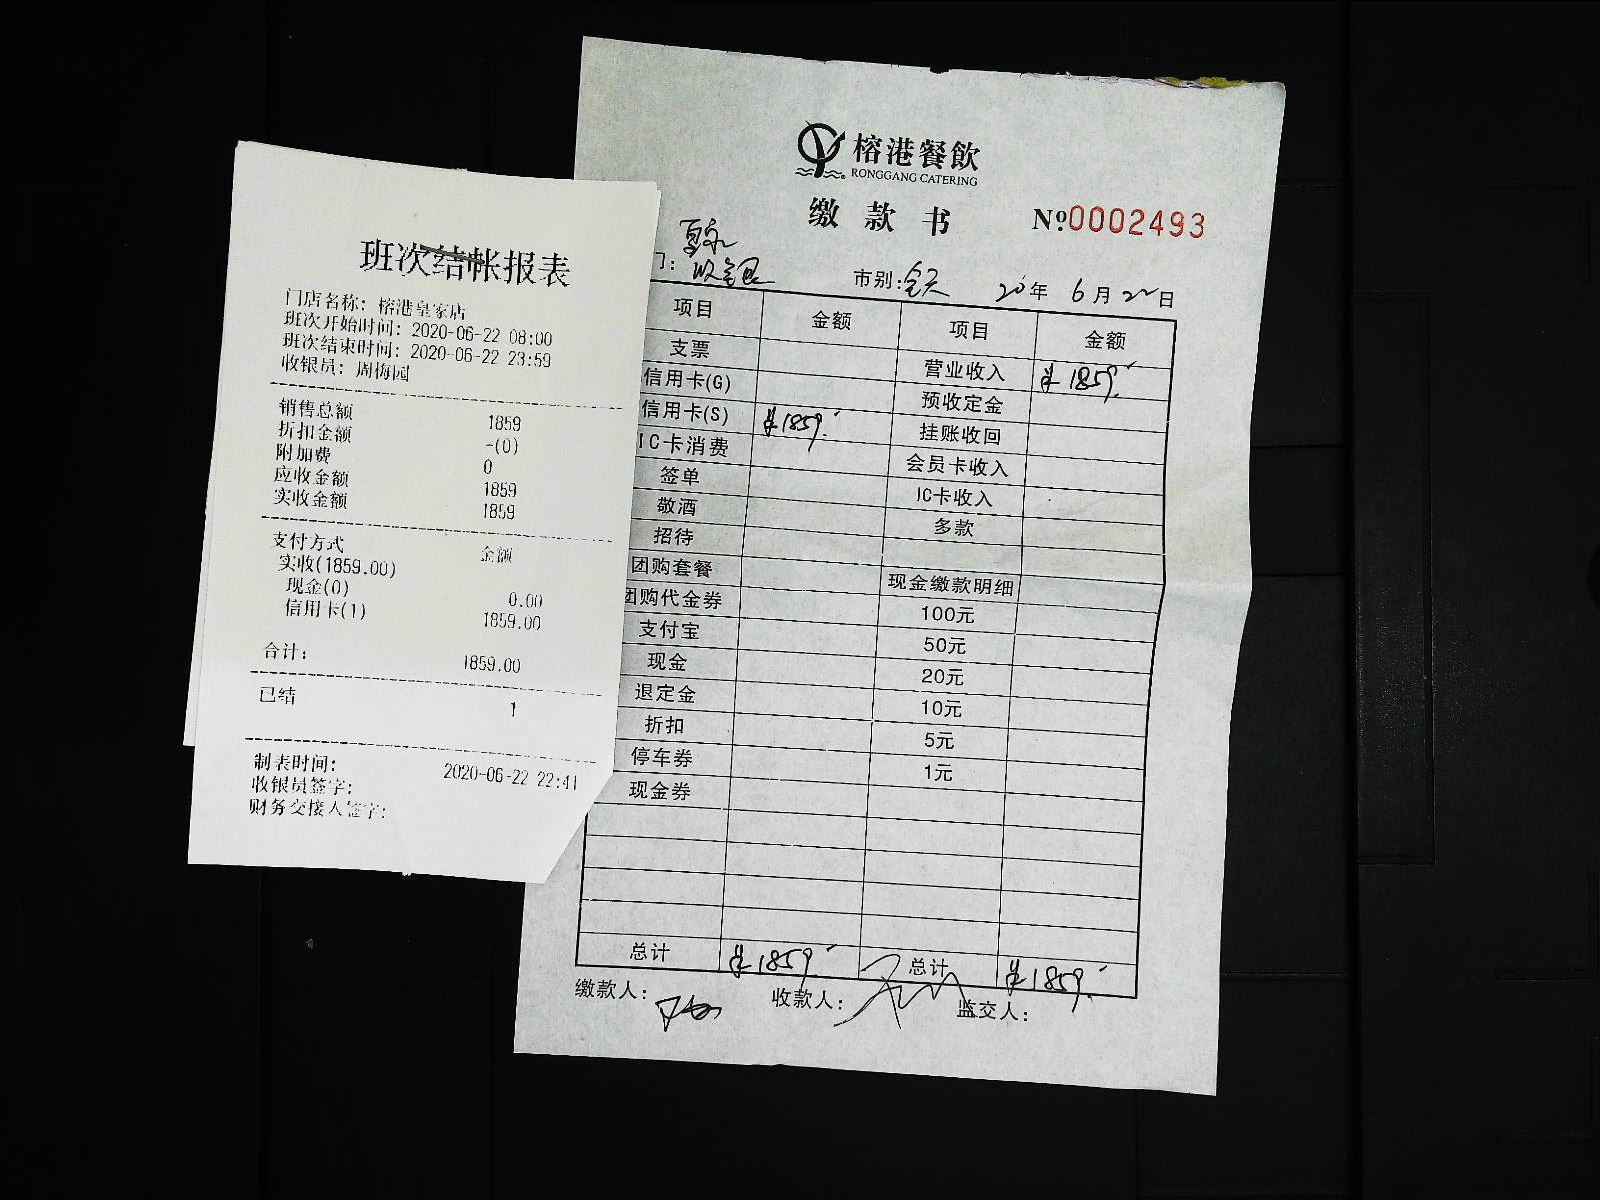 班次结帐报表
门店名称: 榕港皇家店
班次开始时间: 2020-06-22 08:00
班次结束时间: 2020-06-22 23:59
收银员: 周梅园
销售总额 1859
折扣金额 -(0)
附加费 0
应收金额 1859
实收金额 1859
支付方式 金额
实收(1859.00)
现金(0) 0.00
信用卡(1) 1859.00
合计: 1859.00
已结 1
制表时间: 2020-06-22 22:41
收银员签字:
财务交接人签字:
榕港餐飲
RONGGANG CATERING
缴款书 №0002493
门: 收银 市别: 全天 20年 6月 22日
项目 金额 项目 金额
支票 营业收入 ¥1859.
信用卡(G) 预收定金
信用卡(S) ¥1859. 挂账收回
IC卡消费 会员卡收入
签单 IC卡收入
敬酒 多款
招待
团购套餐 现金缴款明细
团购代金券 100元
支付宝 50元
现金 20元
退定金 10元
折扣 5元
停车券 1元
现金券
总计 ¥1859. 总计 ¥1859.
缴款人: 收款人: 监交人: